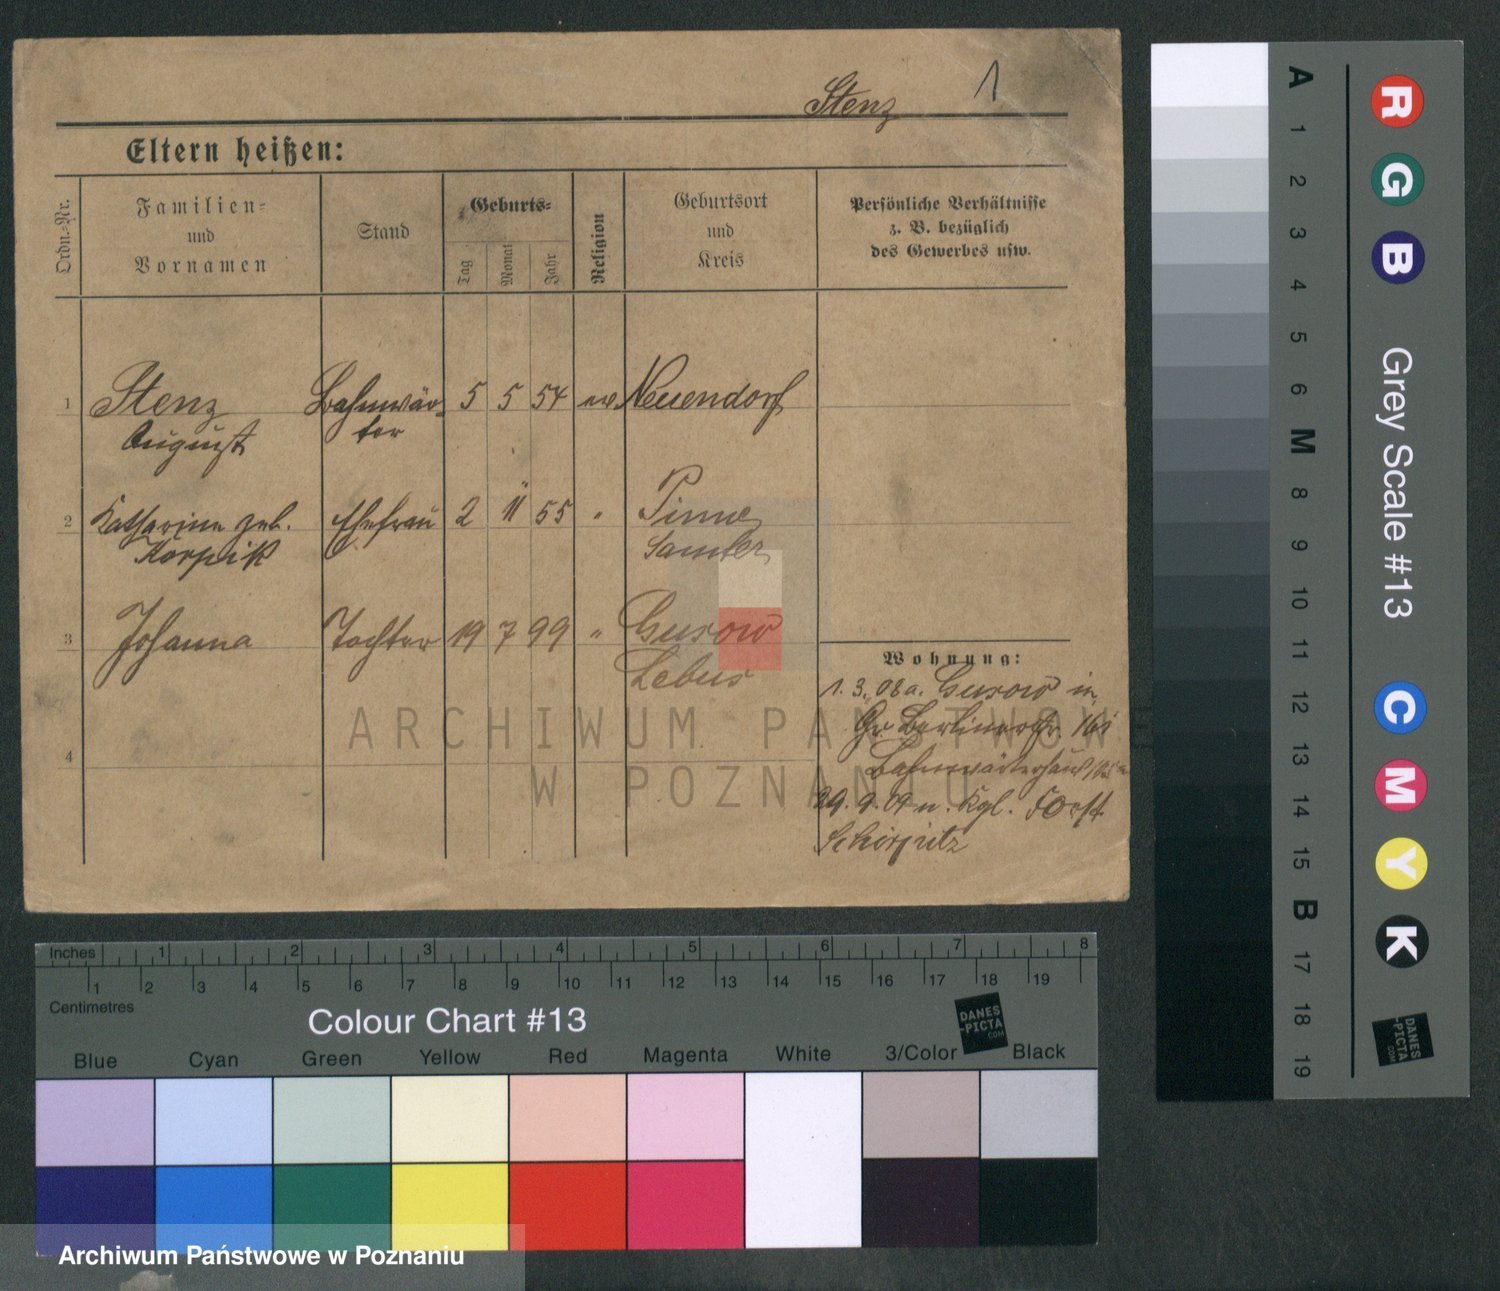 Stenz 1
Eltern heißen:
Ordn.-Nr.
Familien-
und
Vornamen
Stand
Geburts-
Tag
Monat
Jahr
Religion
Geburtsort
und
Kreis
Persönliche Verhältnisse
z. B. bezüglich
des Gewerbes usw.
1 Stenz Bahnwär- 5 5 54 ev Neuendorf
August ter
2 Katharine geb. Ehefrau 2 11 55 " Pinne
Korpik Samter
3 Johanna Tochter 19 7 99 " Gusow
Lebus
4
Wohnung:
1. 3. 08 a. Gusow in
Gr. Berlinerstr. 16
Bahnwärterhaus
29. 9. 09 n. Kgl. Forst
Schirpitz
ARCHIWUM PAŃSTWOWE
W POZNANIU
A 1 2 3 4 5 6 M 8 9 10 11 12 13 14 15 B 17 18 19
R G B
Grey Scale #13
C M Y K
DANES
-PICTA
.COM
Inches 1 2 3 4 5 6 7 8
1 2 3 4 5 6 7 8 9 10 11 12 13 14 15 16 17 18 19
Centimetres
Colour Chart #13
DANES
-PICTA
.COM
Blue Cyan Green Yellow Red Magenta White 3/Color Black
Archiwum Państwowe w Poznaniu